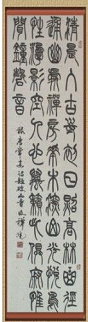 清晨入古寺初日照高林曲徑
通幽處禪房花木深山光悅鳥
性潭影空人心萬籟此俱寂惟
聞鐘磬音
錄唐常建詩題破山寺後禪院